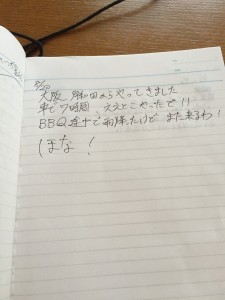 大阪 岸和田からやってきました
車で7時間、ええとこやったで!!
BBQ途中で雨降ったけど また来るわ!
ほな!